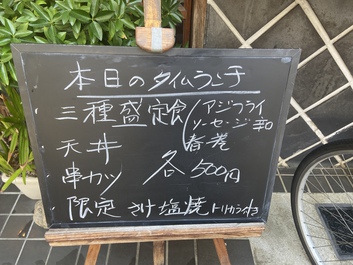 本日のタイムランチ
三種盛定食(アジフライ
ソーセージ
春巻
天丼
串カツ 各500円
限定 さけ塩焼